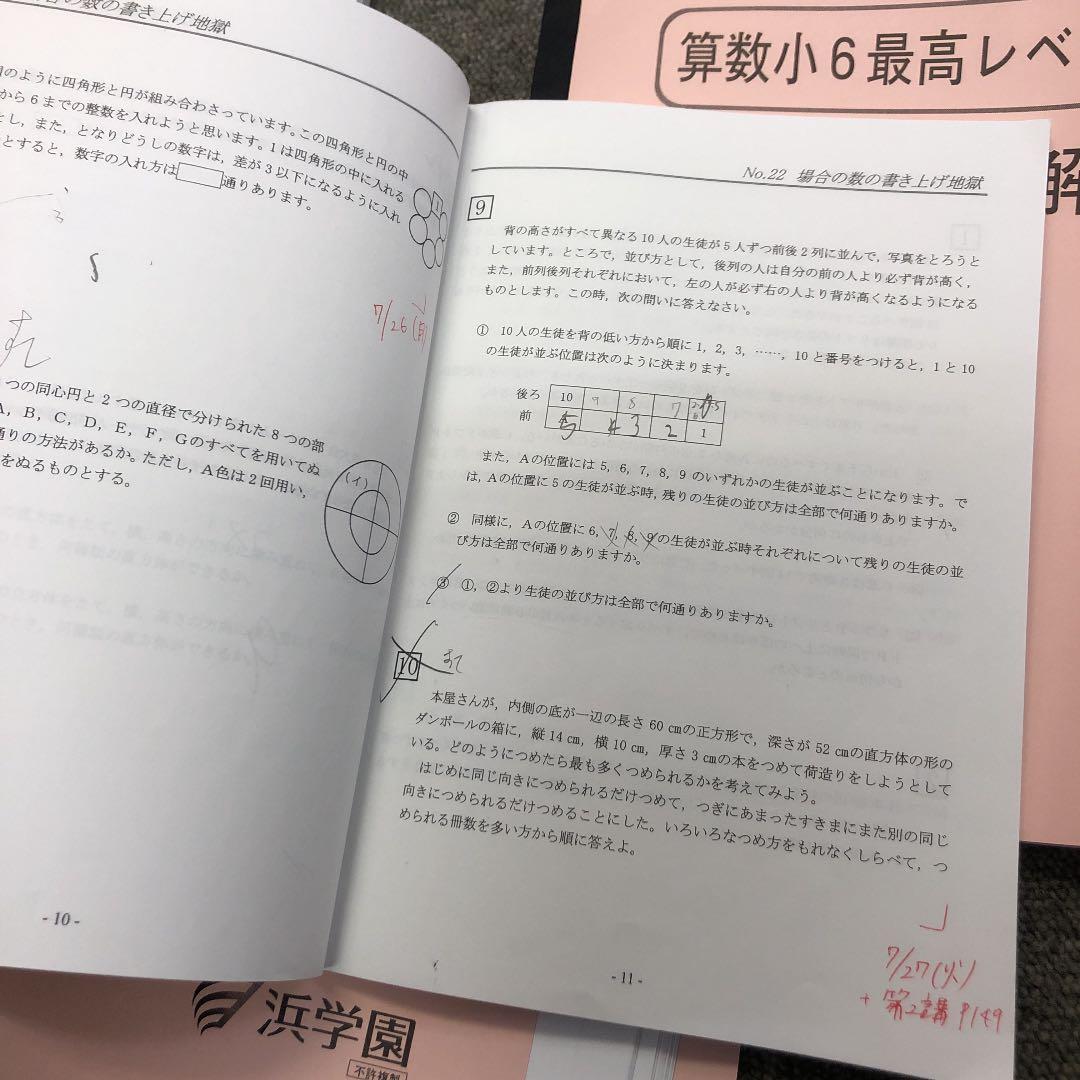 場合の数の書き上げ地獄
のように四角形と円が組み合わさっています。この四角形と円の中
から6までの整数を入れようと思います。1は四角形の中に入れる
とし，また，となりどうしの数字は，差が3以下になるように入れ
とすると，数字の入れ方は 通りあります。
7/26(月)
つの同心円と2つの直径で分けられた8つの部
A，B，C，D，E，F，Gのすべてを用いてぬ
通りの方法があるか。ただし，A色は2回用い，
をぬるものとする。
(イ)
- 10 -
算数小6最高レベ
解
No.22 場合の数の書き上げ地獄
9
背の高さがすべて異なる10人の生徒が5人ずつ前後2列に並んで，写真をとろうと
しています。ところで，並び方として，後列の人は自分の前の人より必ず背が高く，
また，前列後列それぞれにおいて，左の人が必ず右の人より背が高くなるようになる
ものとします。この時，次の問いに答えなさい。
① 10人の生徒を背の低い方から順に1，2，3，……，10と番号をつけると，1と10
の生徒が並ぶ位置は次のように決まります。
後ろ 10 9 8 7
前 5 4 3 2 1
また，Aの位置には5，6，7，8，9のいずれかの生徒が並ぶことになります。で
は，Aの位置に5の生徒が並ぶ時，残りの生徒の並び方は全部で何通りありますか。
② 同様に，Aの位置に6，7，8，9の生徒が並ぶ時それぞれについて残りの生徒の並
び方は全部で何通りありますか。
③ ①，②より生徒の並び方は全部で何通りありますか。
10
本屋さんが，内側の底が一辺の長さ60㎝の正方形で，深さが52㎝の直方体の形の
ダンボールの箱に，縦14㎝，横10㎝，厚さ3㎝の本をつめて荷造りをしようとして
いる。どのようにつめたら最も多くつめられるかを考えてみよう。
はじめに同じ向きにつめられるだけつめて，つぎにあまったすきまにまた別の同じ
向きにつめられるだけつめることにした。いろいろなつめ方をもれなくしらべて，つ
められる冊数を多い方から順に答えよ。
7/27(火)
+ 第2講 P149
- 11 -
浜学園
不許複製